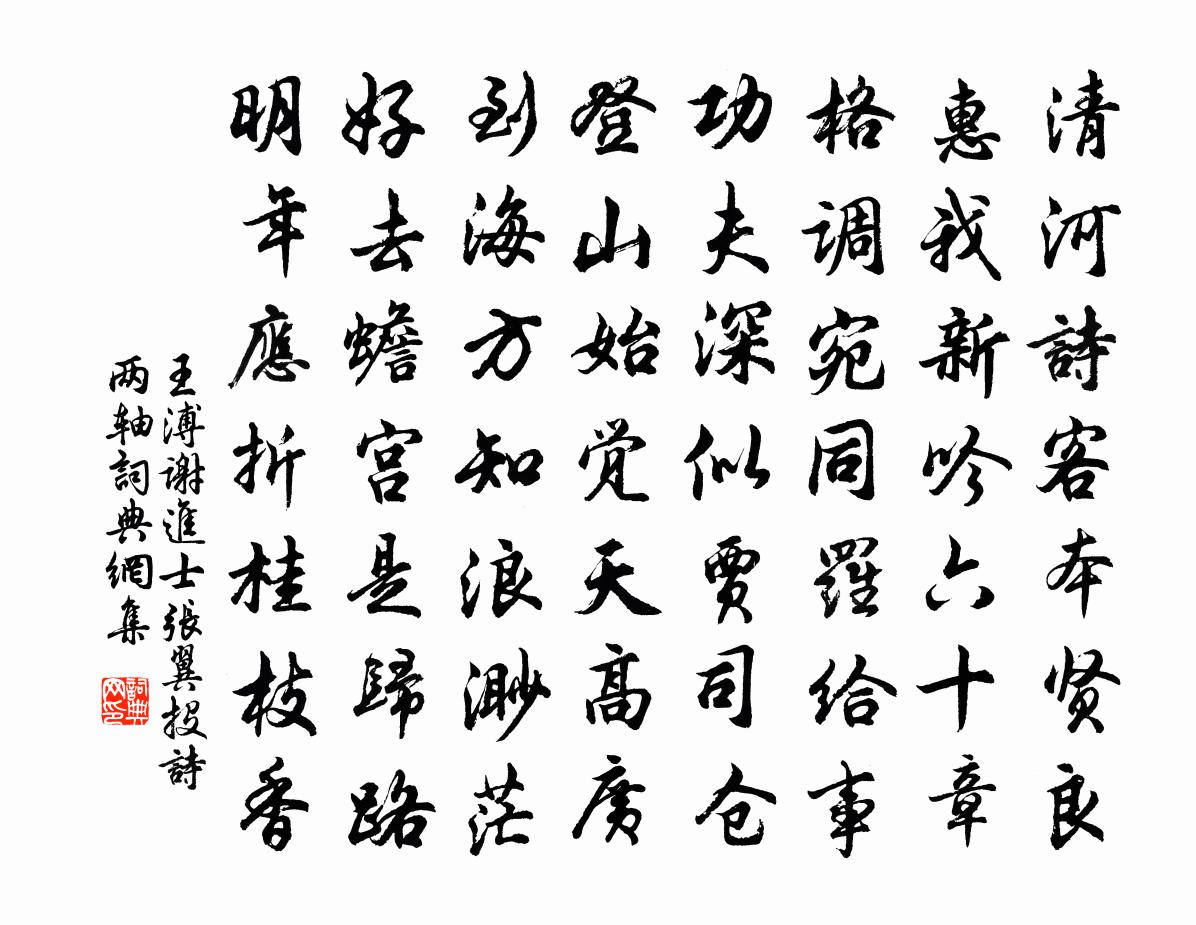 清河詩客本贤良
惠我新吟六十章
格调宛同羅给事
功夫深似贾司仓
登山始觉天高廣
到海方知浪渺茫
好去蟾宫是歸路
明年應折桂枝香
王溥谢進士張翼投詩
两轴詞典網集
詞典网印